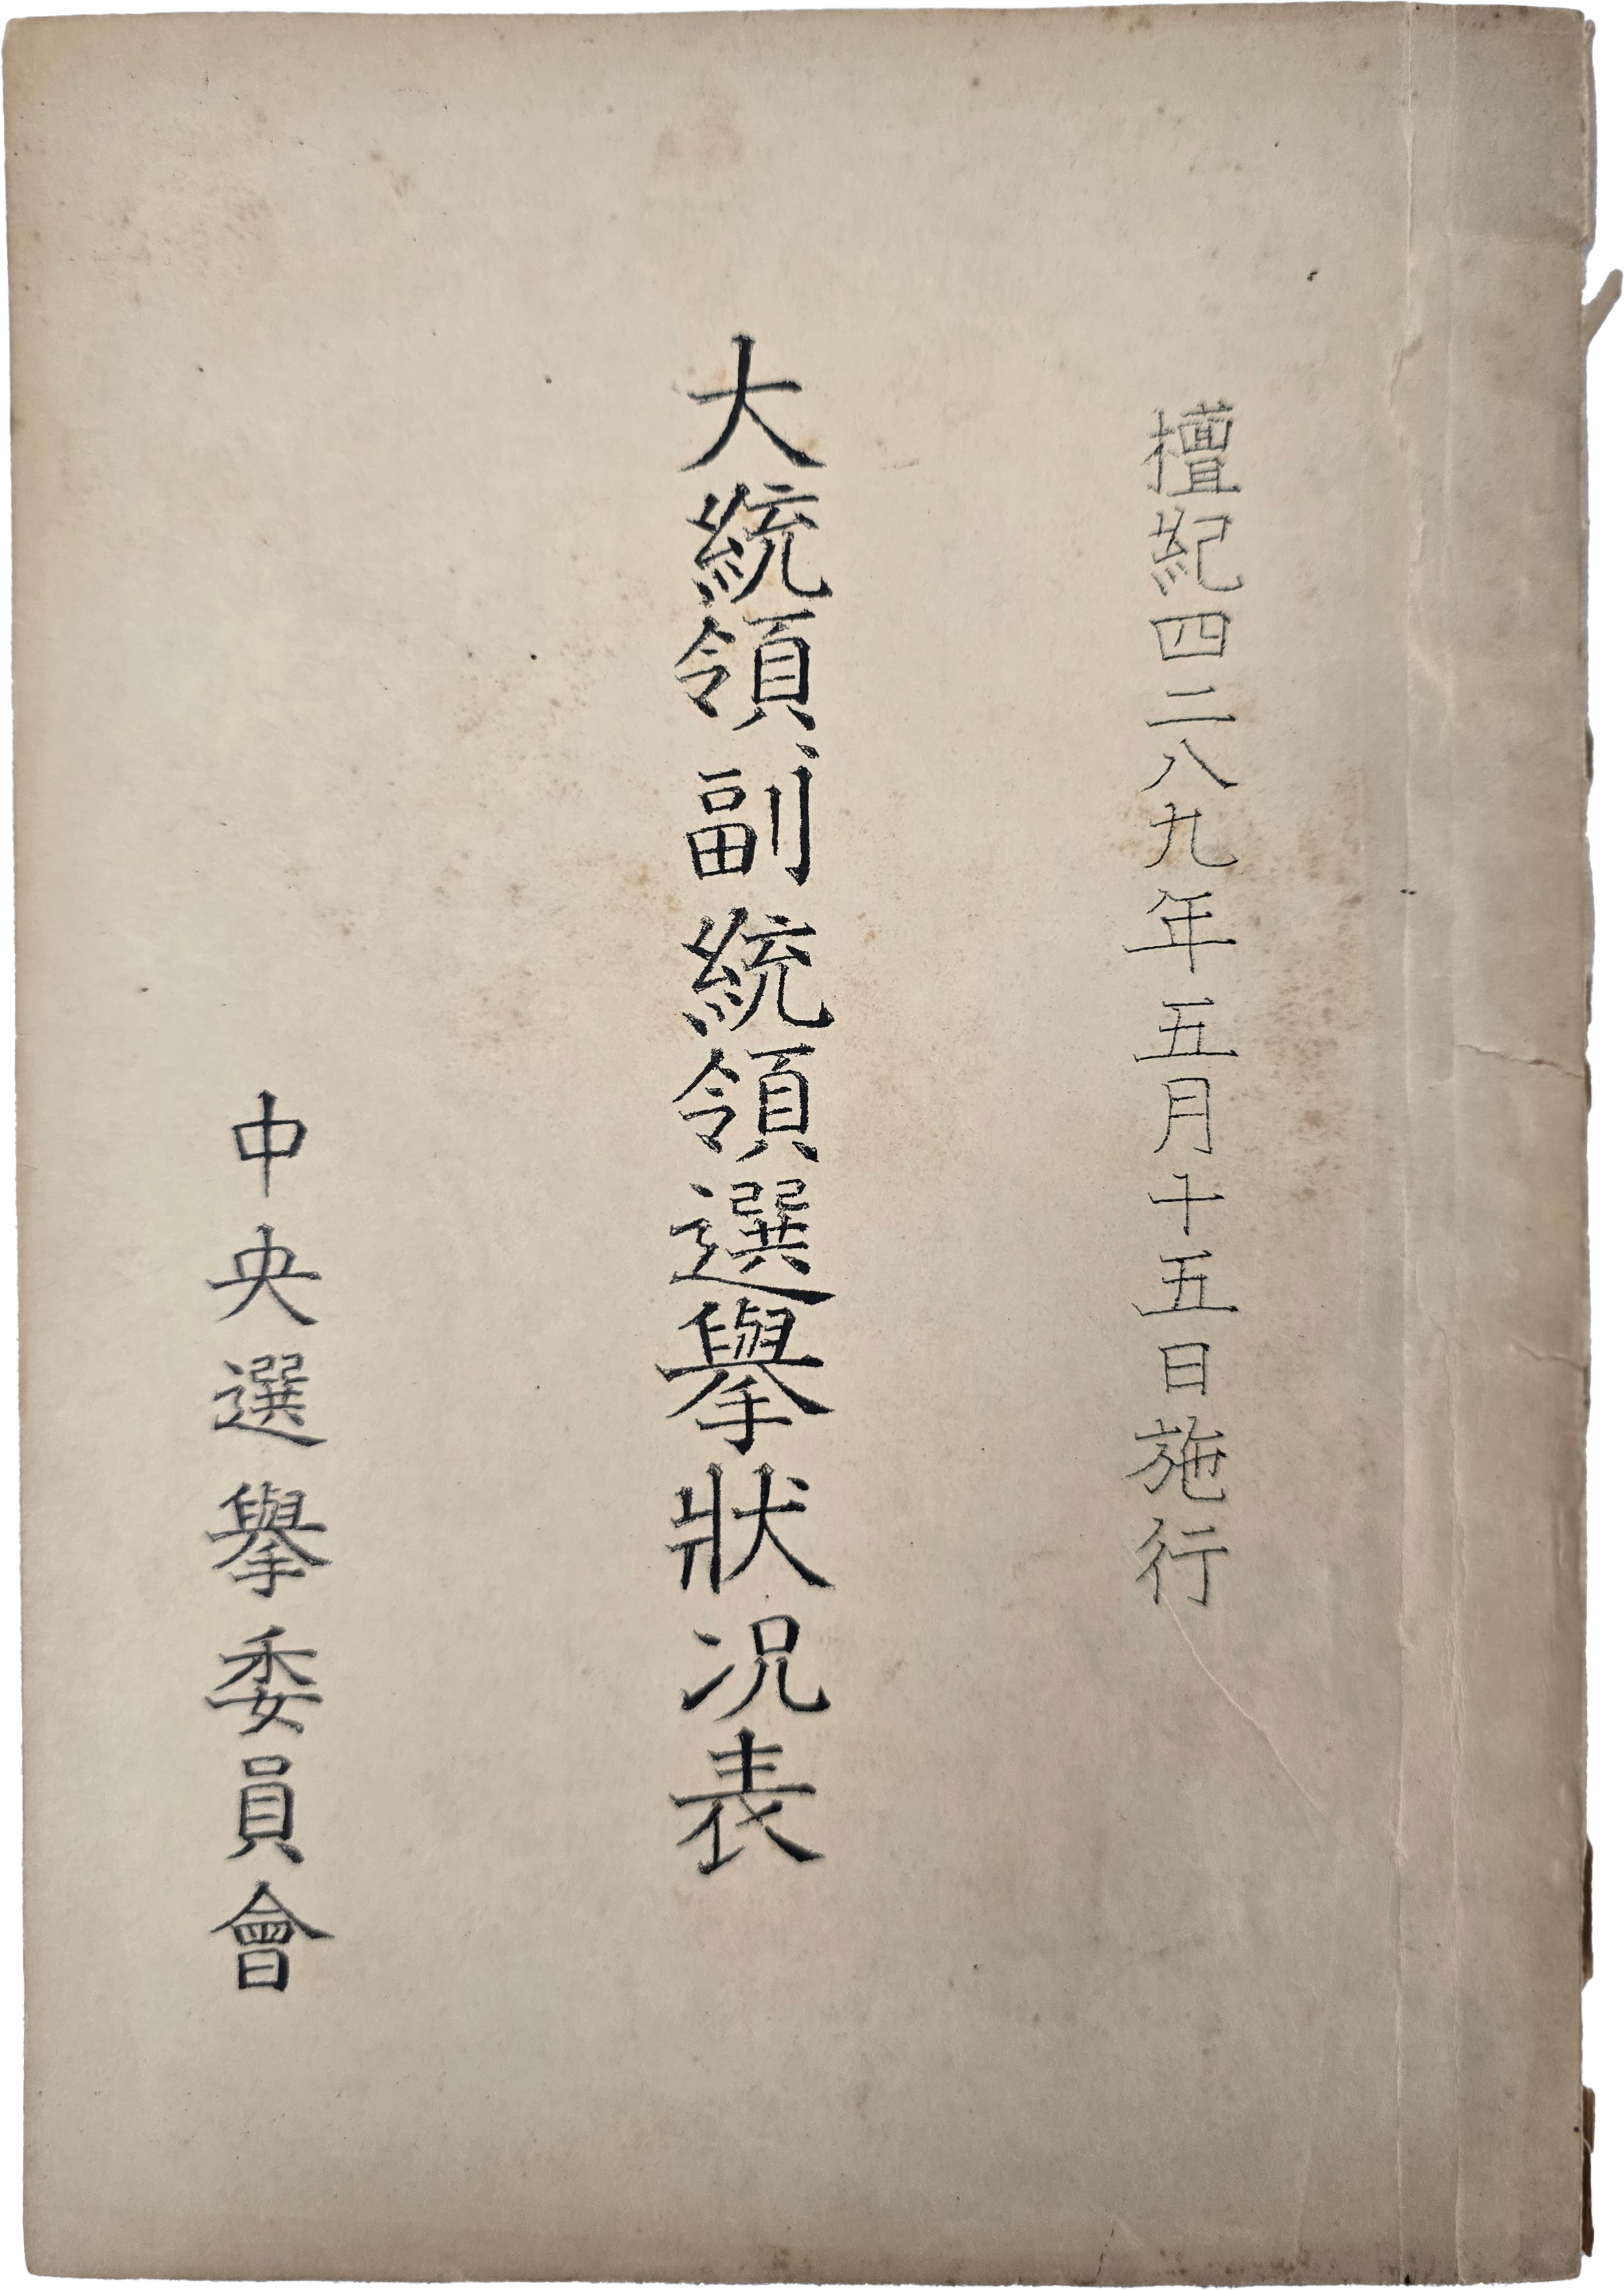 檀紀四二八九年五月十五日施行
大統領、副統領選擧狀況表
中央選擧委員會